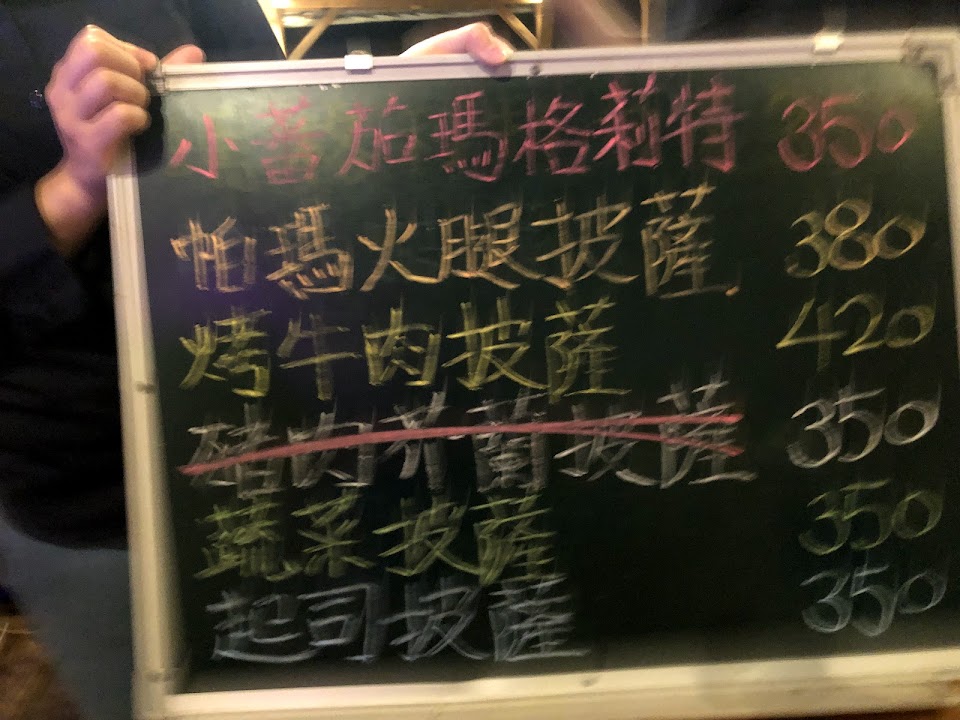 小蕃茄瑪格莉特 350
帕瑪火腿披薩 380
烤牛肉披薩 420
披薩 350
蔬菜披薩 350
起司披薩 350